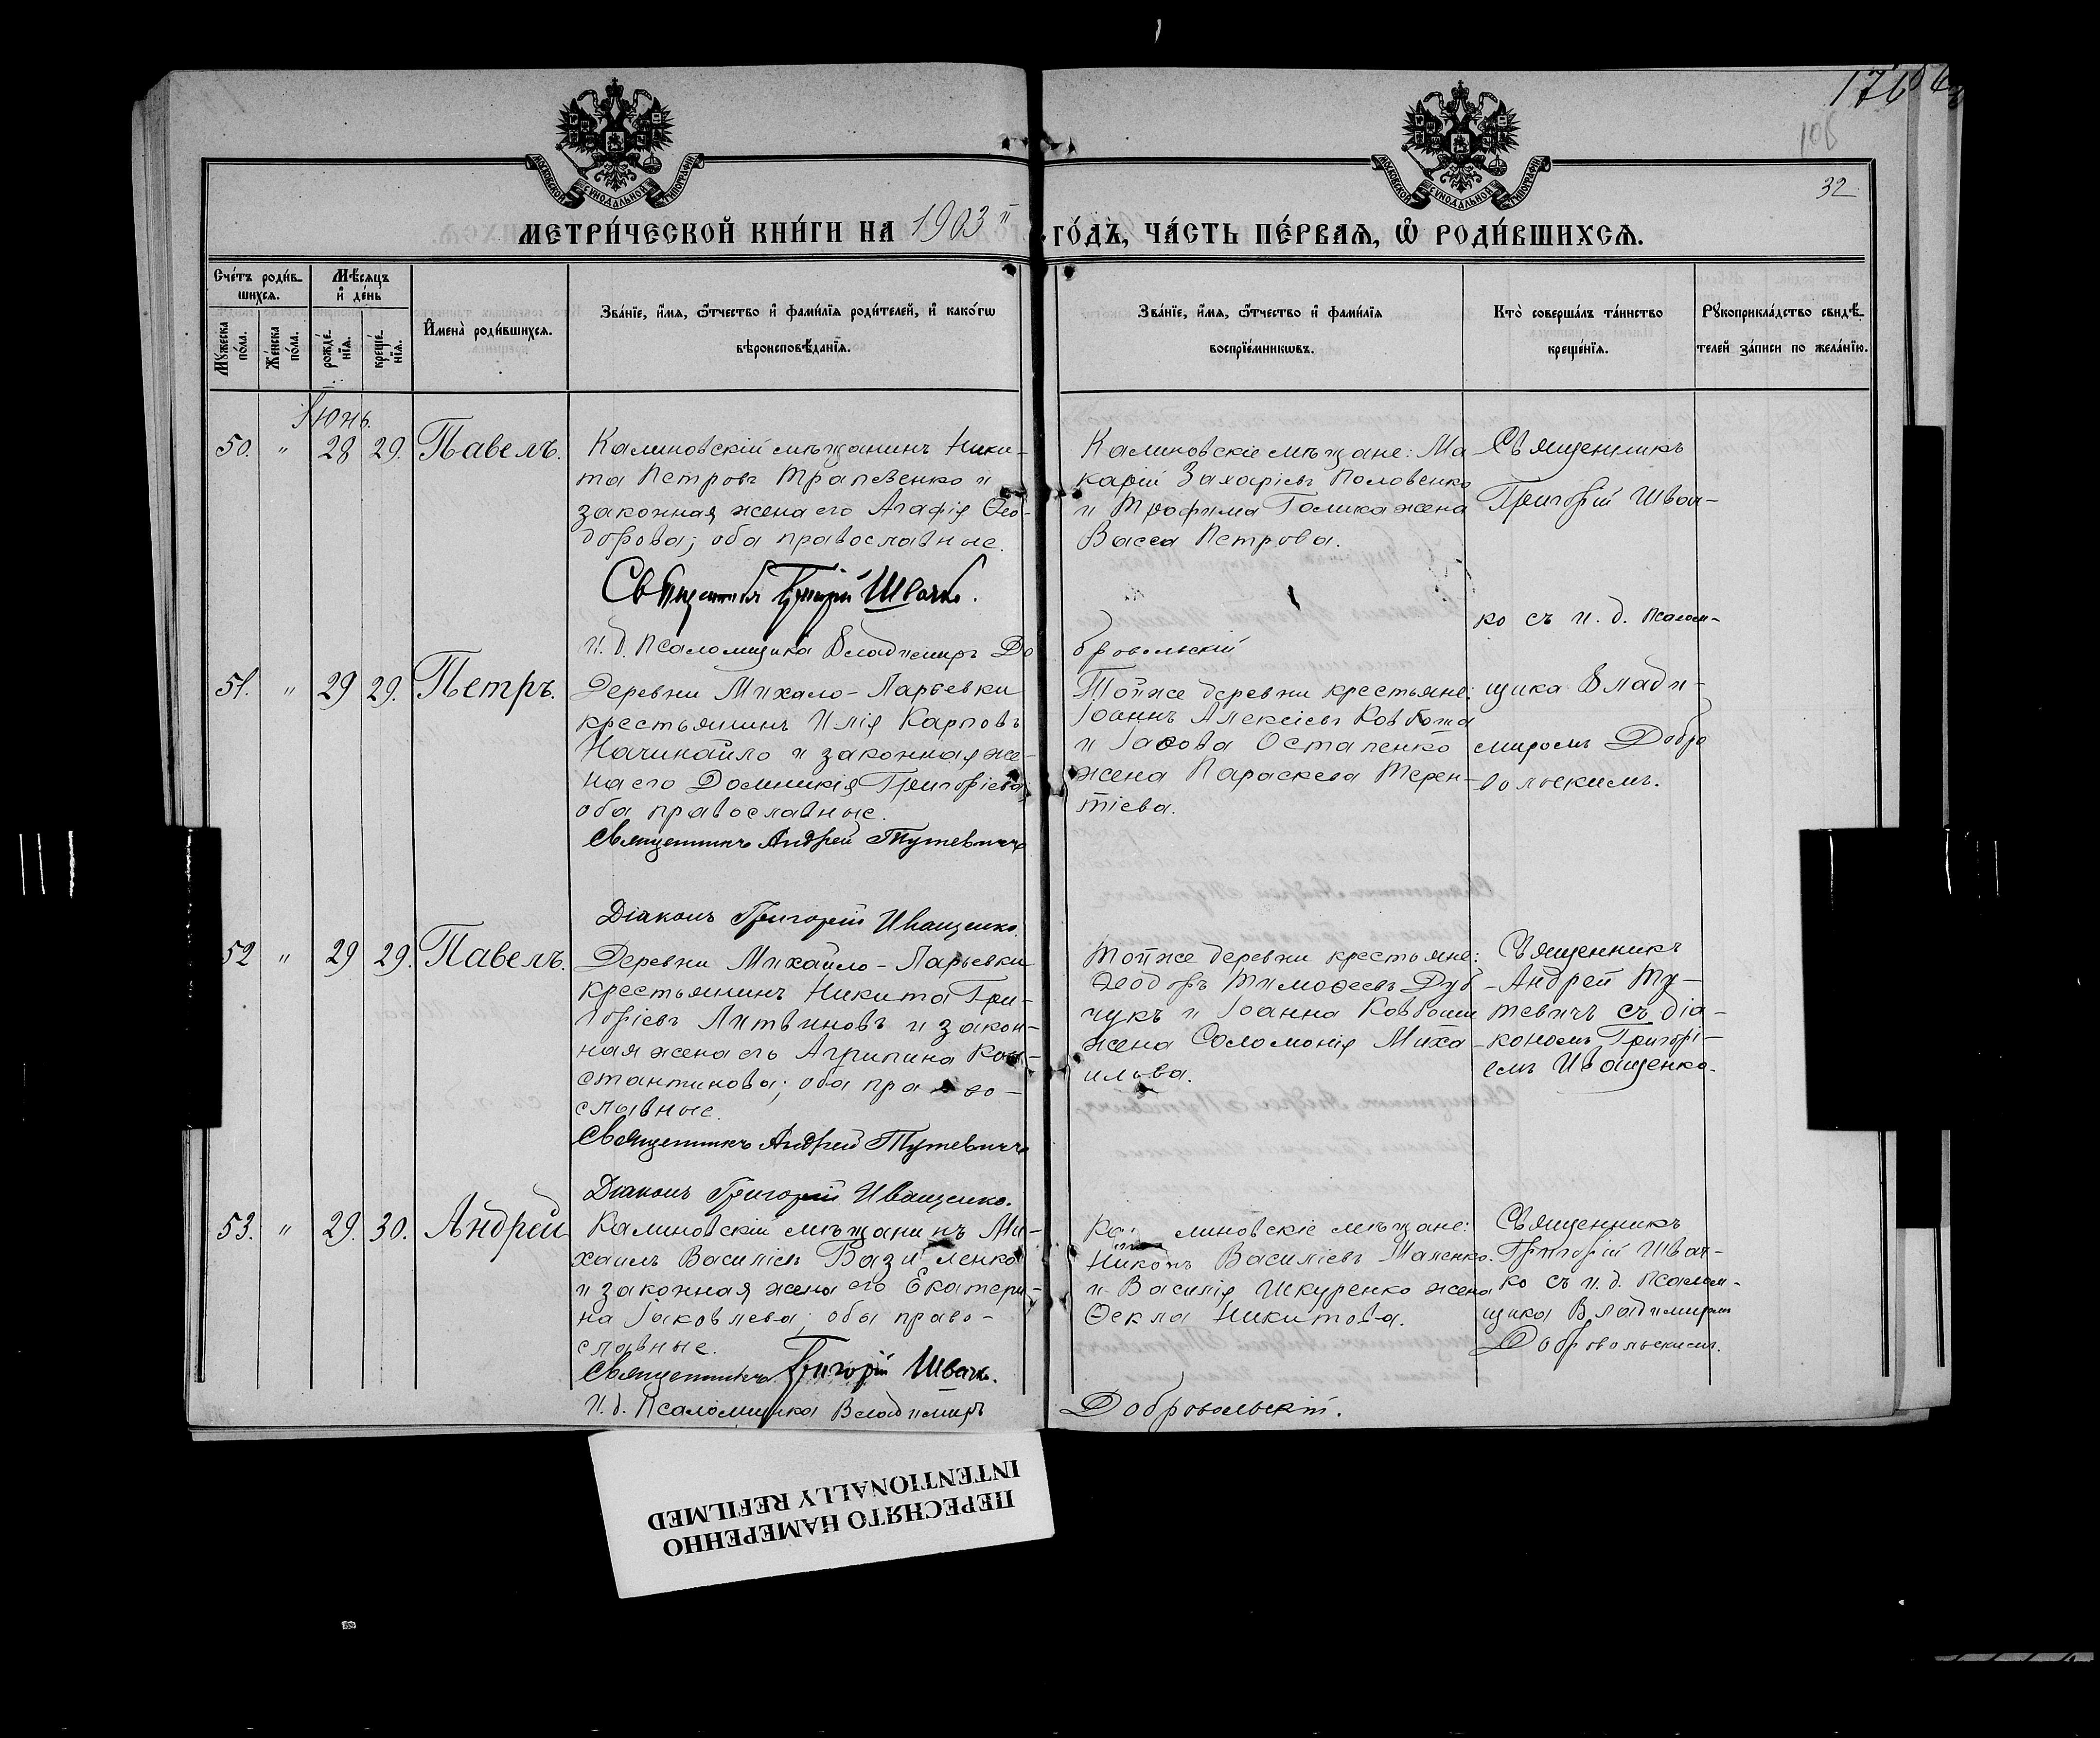 176
106
32
МОСКОВСКОЙ СѴНОДАЛЬНОЙ ТИПОГРАФІИ
МОСКОВСКОЙ СѴНОДАЛЬНОЙ ТИПОГРАФІИ
МЕТРИ́ЧЕСКОЙ КНИ́ГИ НА 1903 й ГО́ДЪ, ЧА́СТЬ ПЕ́РВАѦ, Ѡ҆ РОДИ́ВШИХСѦ.
Сче́тъ роди́в-
шихсѧ.
Мꙋ́жеска по́ла.
Же́нска по́ла.
Мѣ́сѧцъ
и҆ де́нь
рожде́-
нїѧ.
креще́-
нїѧ.
И҆мена̀ роди́вшихсѧ.
Зва́нїе, и҆́мѧ, ѻ҆́тчество и҆ фами́лїѧ роди́телей, и҆ како́гѡ
вѣроисповѣ́данїѧ.
Зва́нїе, и҆́мѧ, ѻ҆́тчество и҆ фами́лїѧ
воспрїе́мникѡвъ.
Кто̀ соверша́лъ та́инство
креще́нїѧ.
Рꙋкоприкла́дство свидѣ́-
телей за́писи по жела́нїю.
Іюнь.
50. " 28 29. Павелъ.
Калиновскій мѣщанинъ Ники-
та Петровъ Трапезенко и
законная жена его Агафія Ѳео-
дорова; оба православные.
Священникъ Григорій Швачко.
и. д. Псаломщика Владимиръ До
Калиновскіе мѣщане: Ма-
карій Захаріевъ Половенко
и Трофима Голика жена
Васса Петрова.
бровольскій
Священникъ
Григорій Швач-
ко съ и. д. Псалом-
щика Влади-
миромъ Добро
вольскимъ.
51. " 29 29. Петръ.
Деревни Михайло-Ларьевки
крестьянинъ Илія Карповъ
Начинайло и законная же-
на его Домникія Григоріева
оба православные.
Священникъ Андрей Тутевичъ
Діаконъ Григорій Иващенко.
Той же деревни крестьяне:
Іоаннъ Алексіевъ Ковбаша
и Іакова Остапенко
жена Параскева Терен-
тіева.
52 " 29 29. Павелъ.
Деревни Михайло-Ларьевки
крестьянинъ Никита Гри-
горіевъ Литвиновъ и закон-
ная жена его Агрипина Кон-
стантинова; оба право-
славные.
Священникъ Андрей Тутевичъ
Діаконъ Григорій Иващенко.
Той же деревни крестьяне:
Ѳеодоръ Тимоѳеевъ Дуб-
чукъ и Іоанна Ковбаши
жена Соломонія Миха-
илова.
Священникъ
Андрей Ту-
тевичъ съ діа-
кономъ Григорі-
емъ Иващенко.
53. " 29. 30. Андрей
Калиновскій мѣщанинъ Ми-
хаилъ Василіевъ Базиленко
и законная жена его Екатери-
на Іаковлева; оба право-
славные.
Священникъ Григорій Швачко.
и. д. Псаломщика Владимиръ
Калиновскіе мѣщане:
Никонъ Василіевъ Маленко
и Василія Шкуренко жена
Ѳекла Никитова.
Добровольскій.
Священникъ
Григорій Швач-
ко съ и. д. Псалом-
щика Владимиромъ
Добровольскимъ.
ПЕРЕСНЯТО НАМЕРЕННО
INTENTIONALLY REFILMED